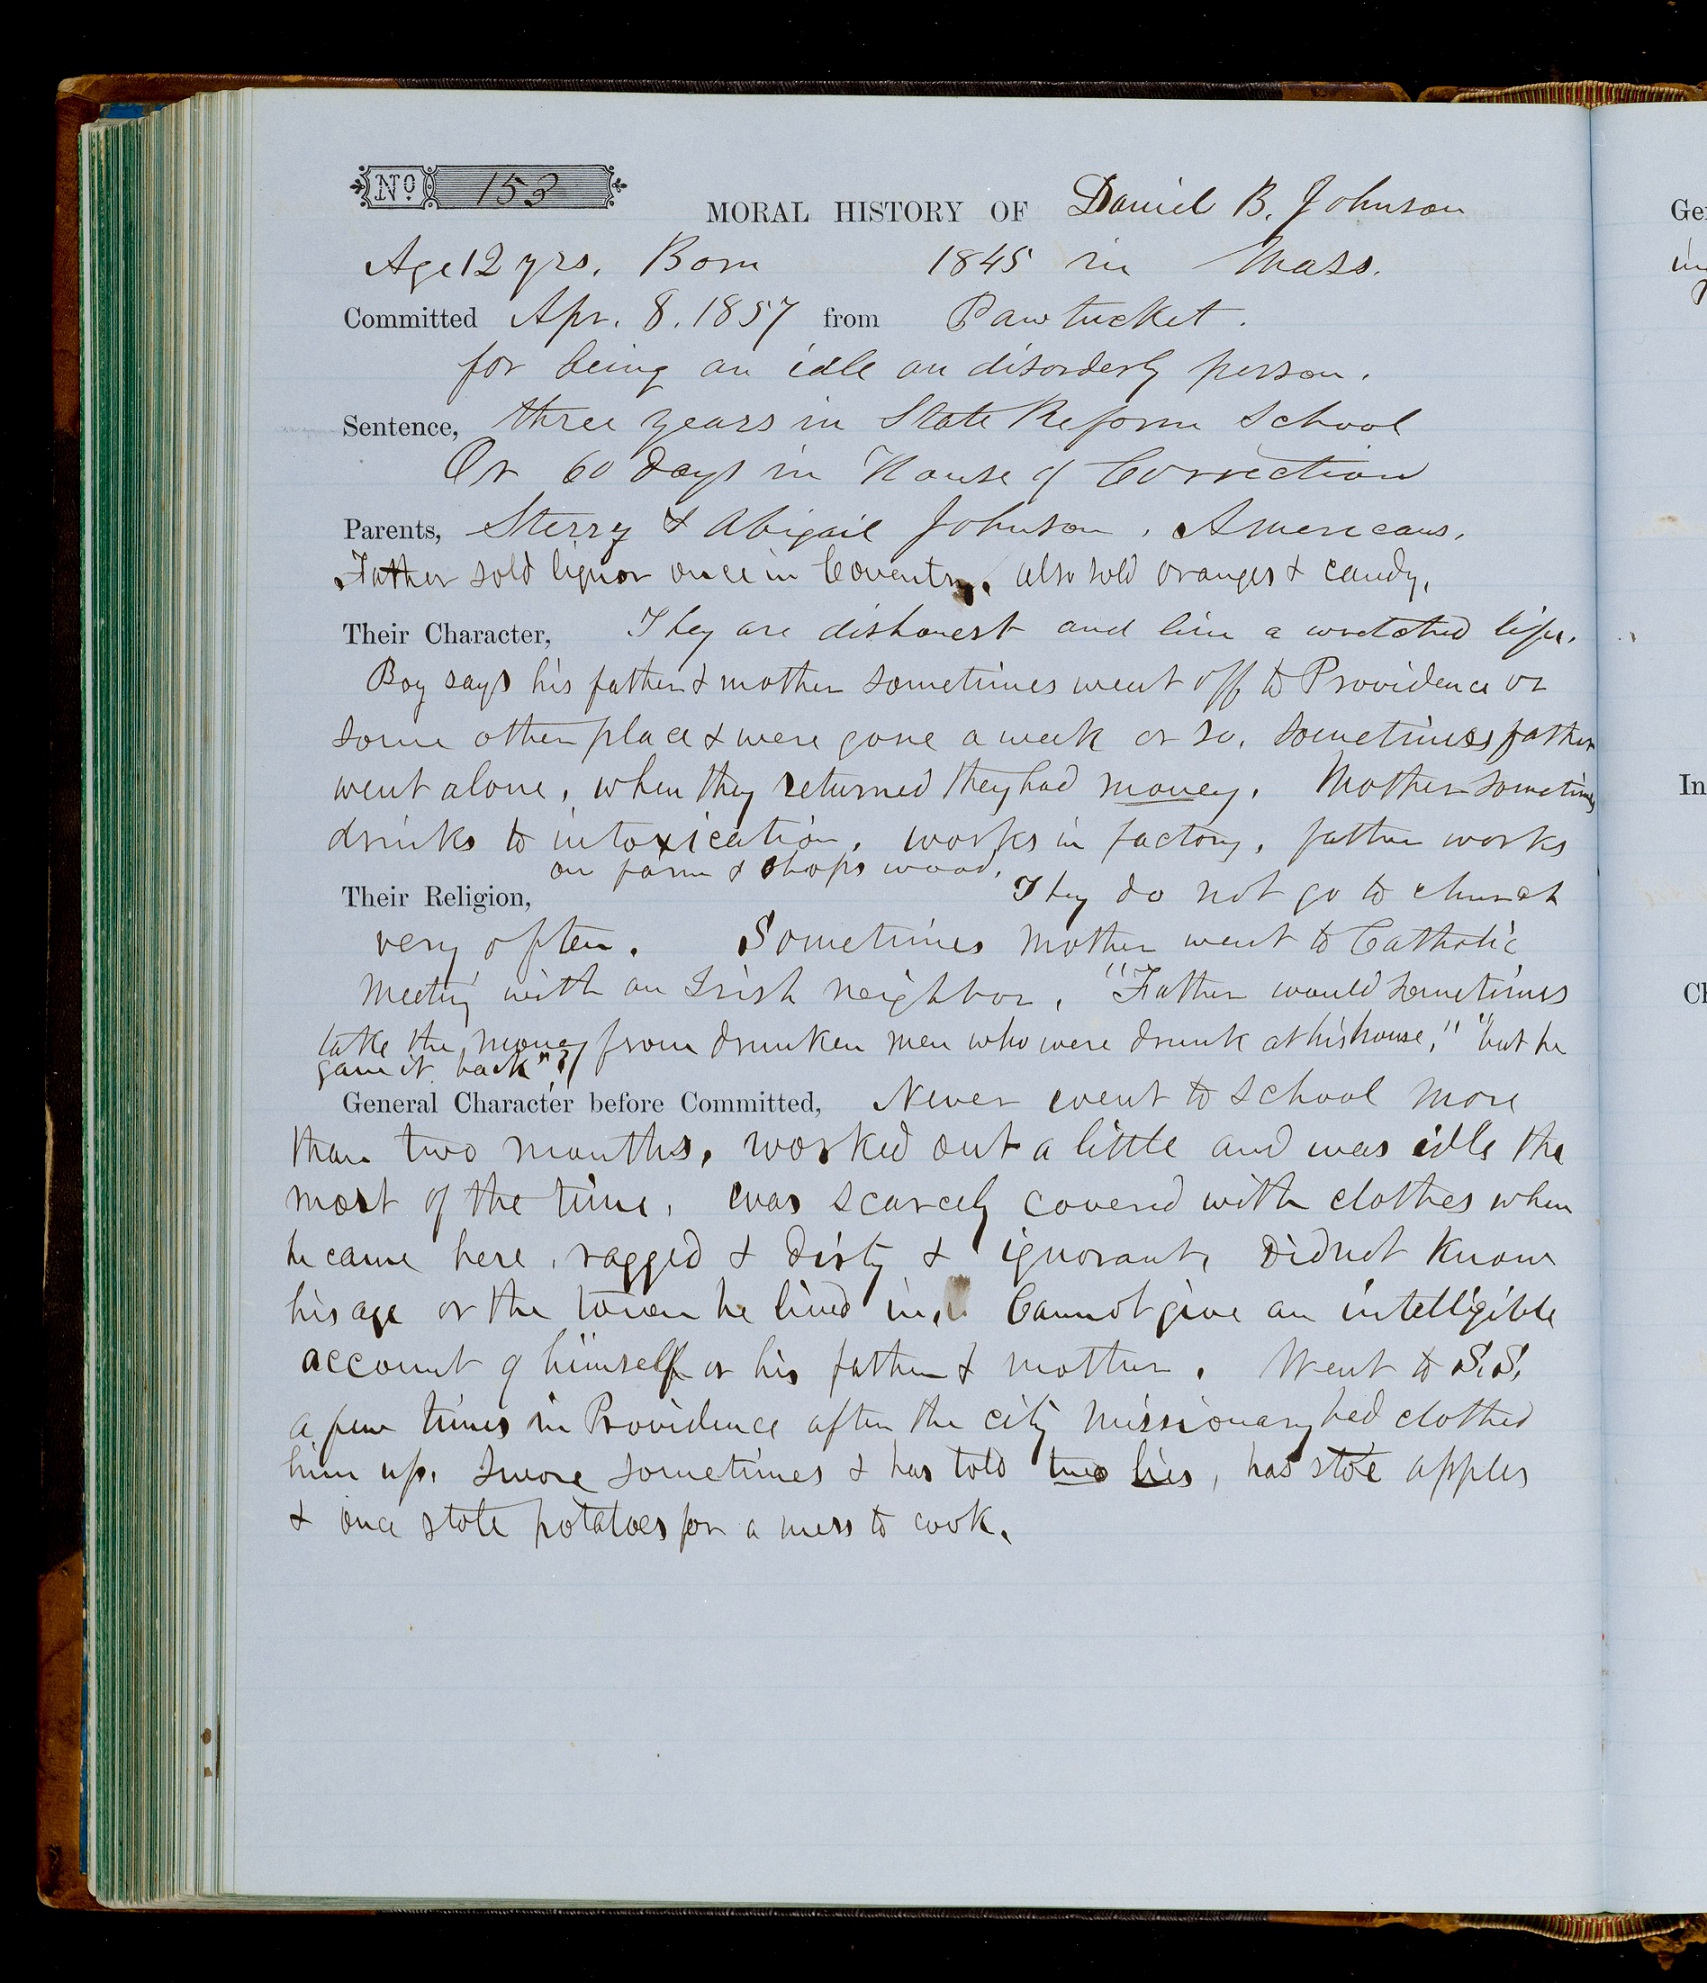 No. 153
MORAL HISTORY OF Daniel B. Johnson
Age 12 yrs. Born 1845 in Mass.
Committed Apr. 8. 1857 from Pawtucket.
for being an idle an disorderly person.
Sentence, three years in State Reform School
Or 60 days in House of Correction
Parents, Sterry & Abigail Johnson. Americans.
Father sold liquor once in Coventry. also sold oranges & candy.
Their Character, They are dishonest and live a wretched life.
Boy says his father & mother sometimes went off to Providence or
some other place & were gone a week or so. sometimes father
went alone, when they returned they had money. Mother sometimes
drinks to intoxication. works in factory. father works
on farm & chops wood.
Their Religion, They do not go to church
very often. Sometimes mother went to Catholic
Meeting with an Irish neighbor. "Father would sometimes
take the money from drunken men who were drunk at his house," "but he
gave it back"?
General Character before Committed, Never went to school more
than two months. worked out a little and was idle the
most of the time. was scarcely covered with clothes when
he came here. ragged & dirty & ignorant. Did not know
his age or the town he lived in. Cannot give an intelligible
account of himself or his father & mother. Went to S.S.
a few times in Providence after the city missionary had clothed
him up. Swore sometimes & has told two lies, has stole apples
& once stole potatoes for a mess to cook.
Ge
in
In
Ch